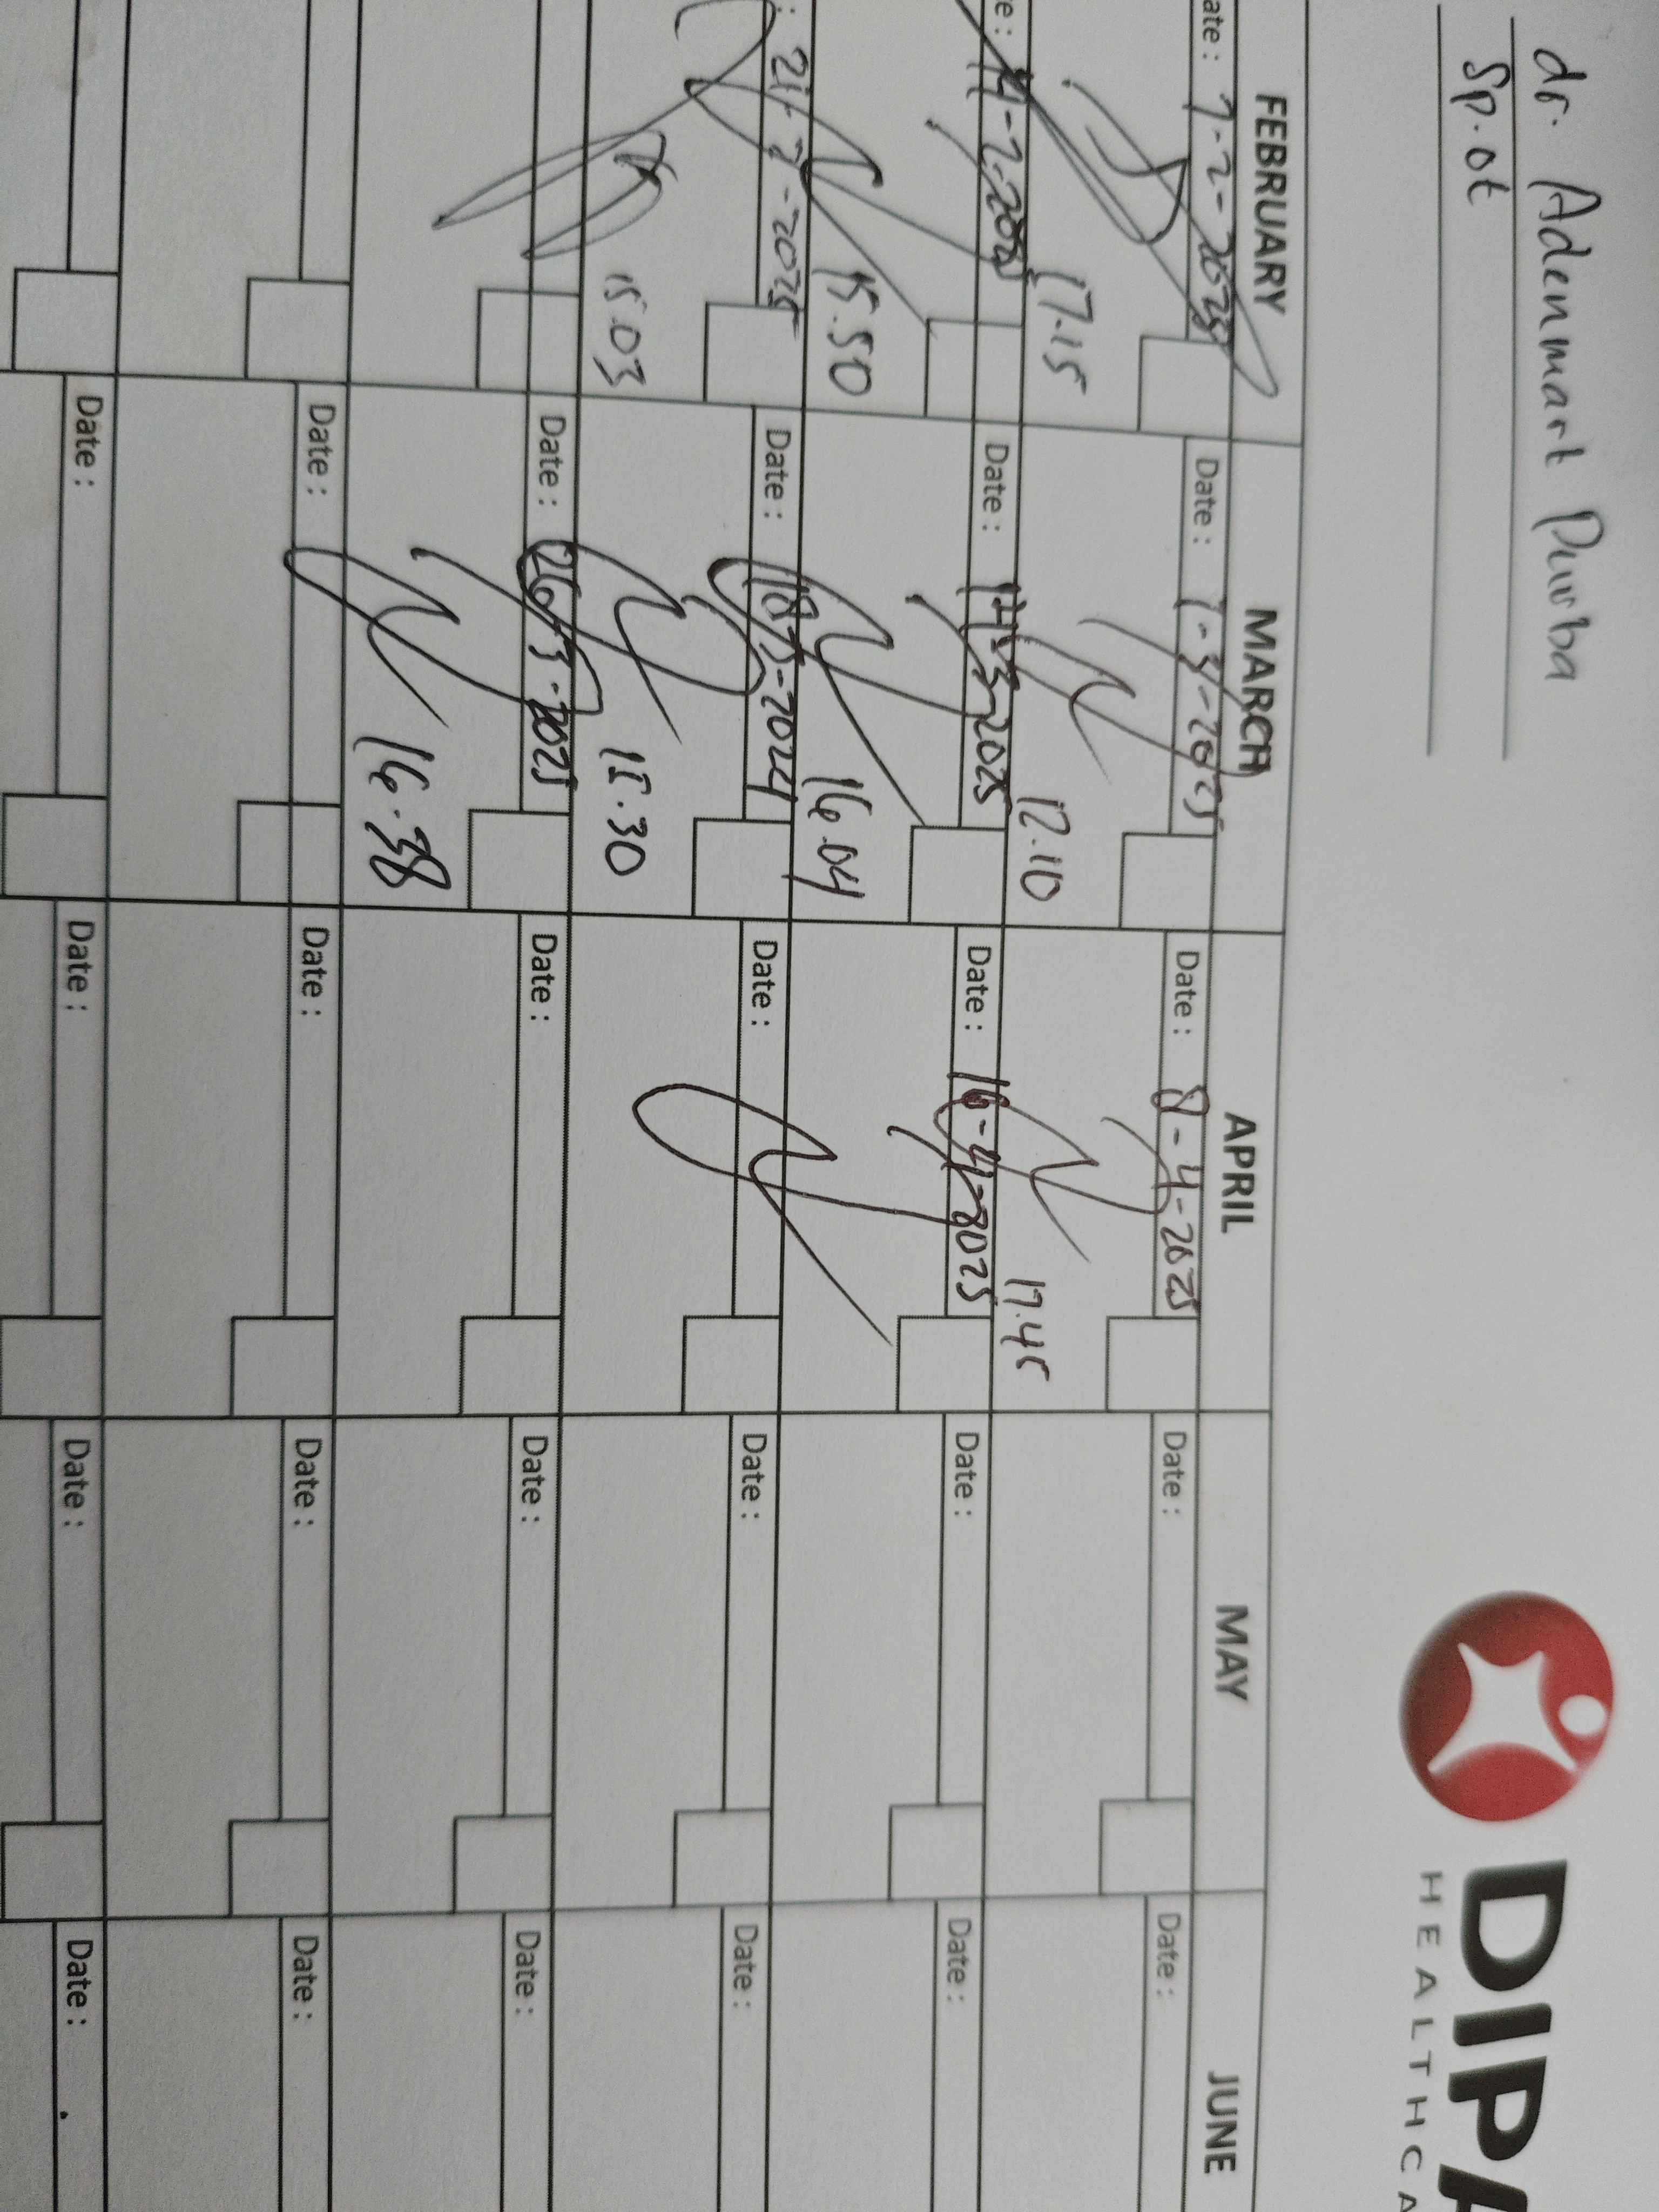 dr. Adenmart Purba
Sp.ot
DIP
HEALTHCA
FEBRUARY MARCH APRIL MAY JUNE
ate : 7-2-2025 Date : 7-3-2025 Date : 8-4-2025 Date : Date :
17.15 12.10 17.45
e : 14-2-2025 Date : 14-3-2025 Date : 16-4-2025 Date : Date :
15.50 16.04
: 21-2-2025 Date : 18-3-2024 Date : Date : Date :
15.03 15.30
Date : 26-3-2025 Date : Date : Date :
16.38
Date : Date : Date : Date :
Date : Date : Date : Date :